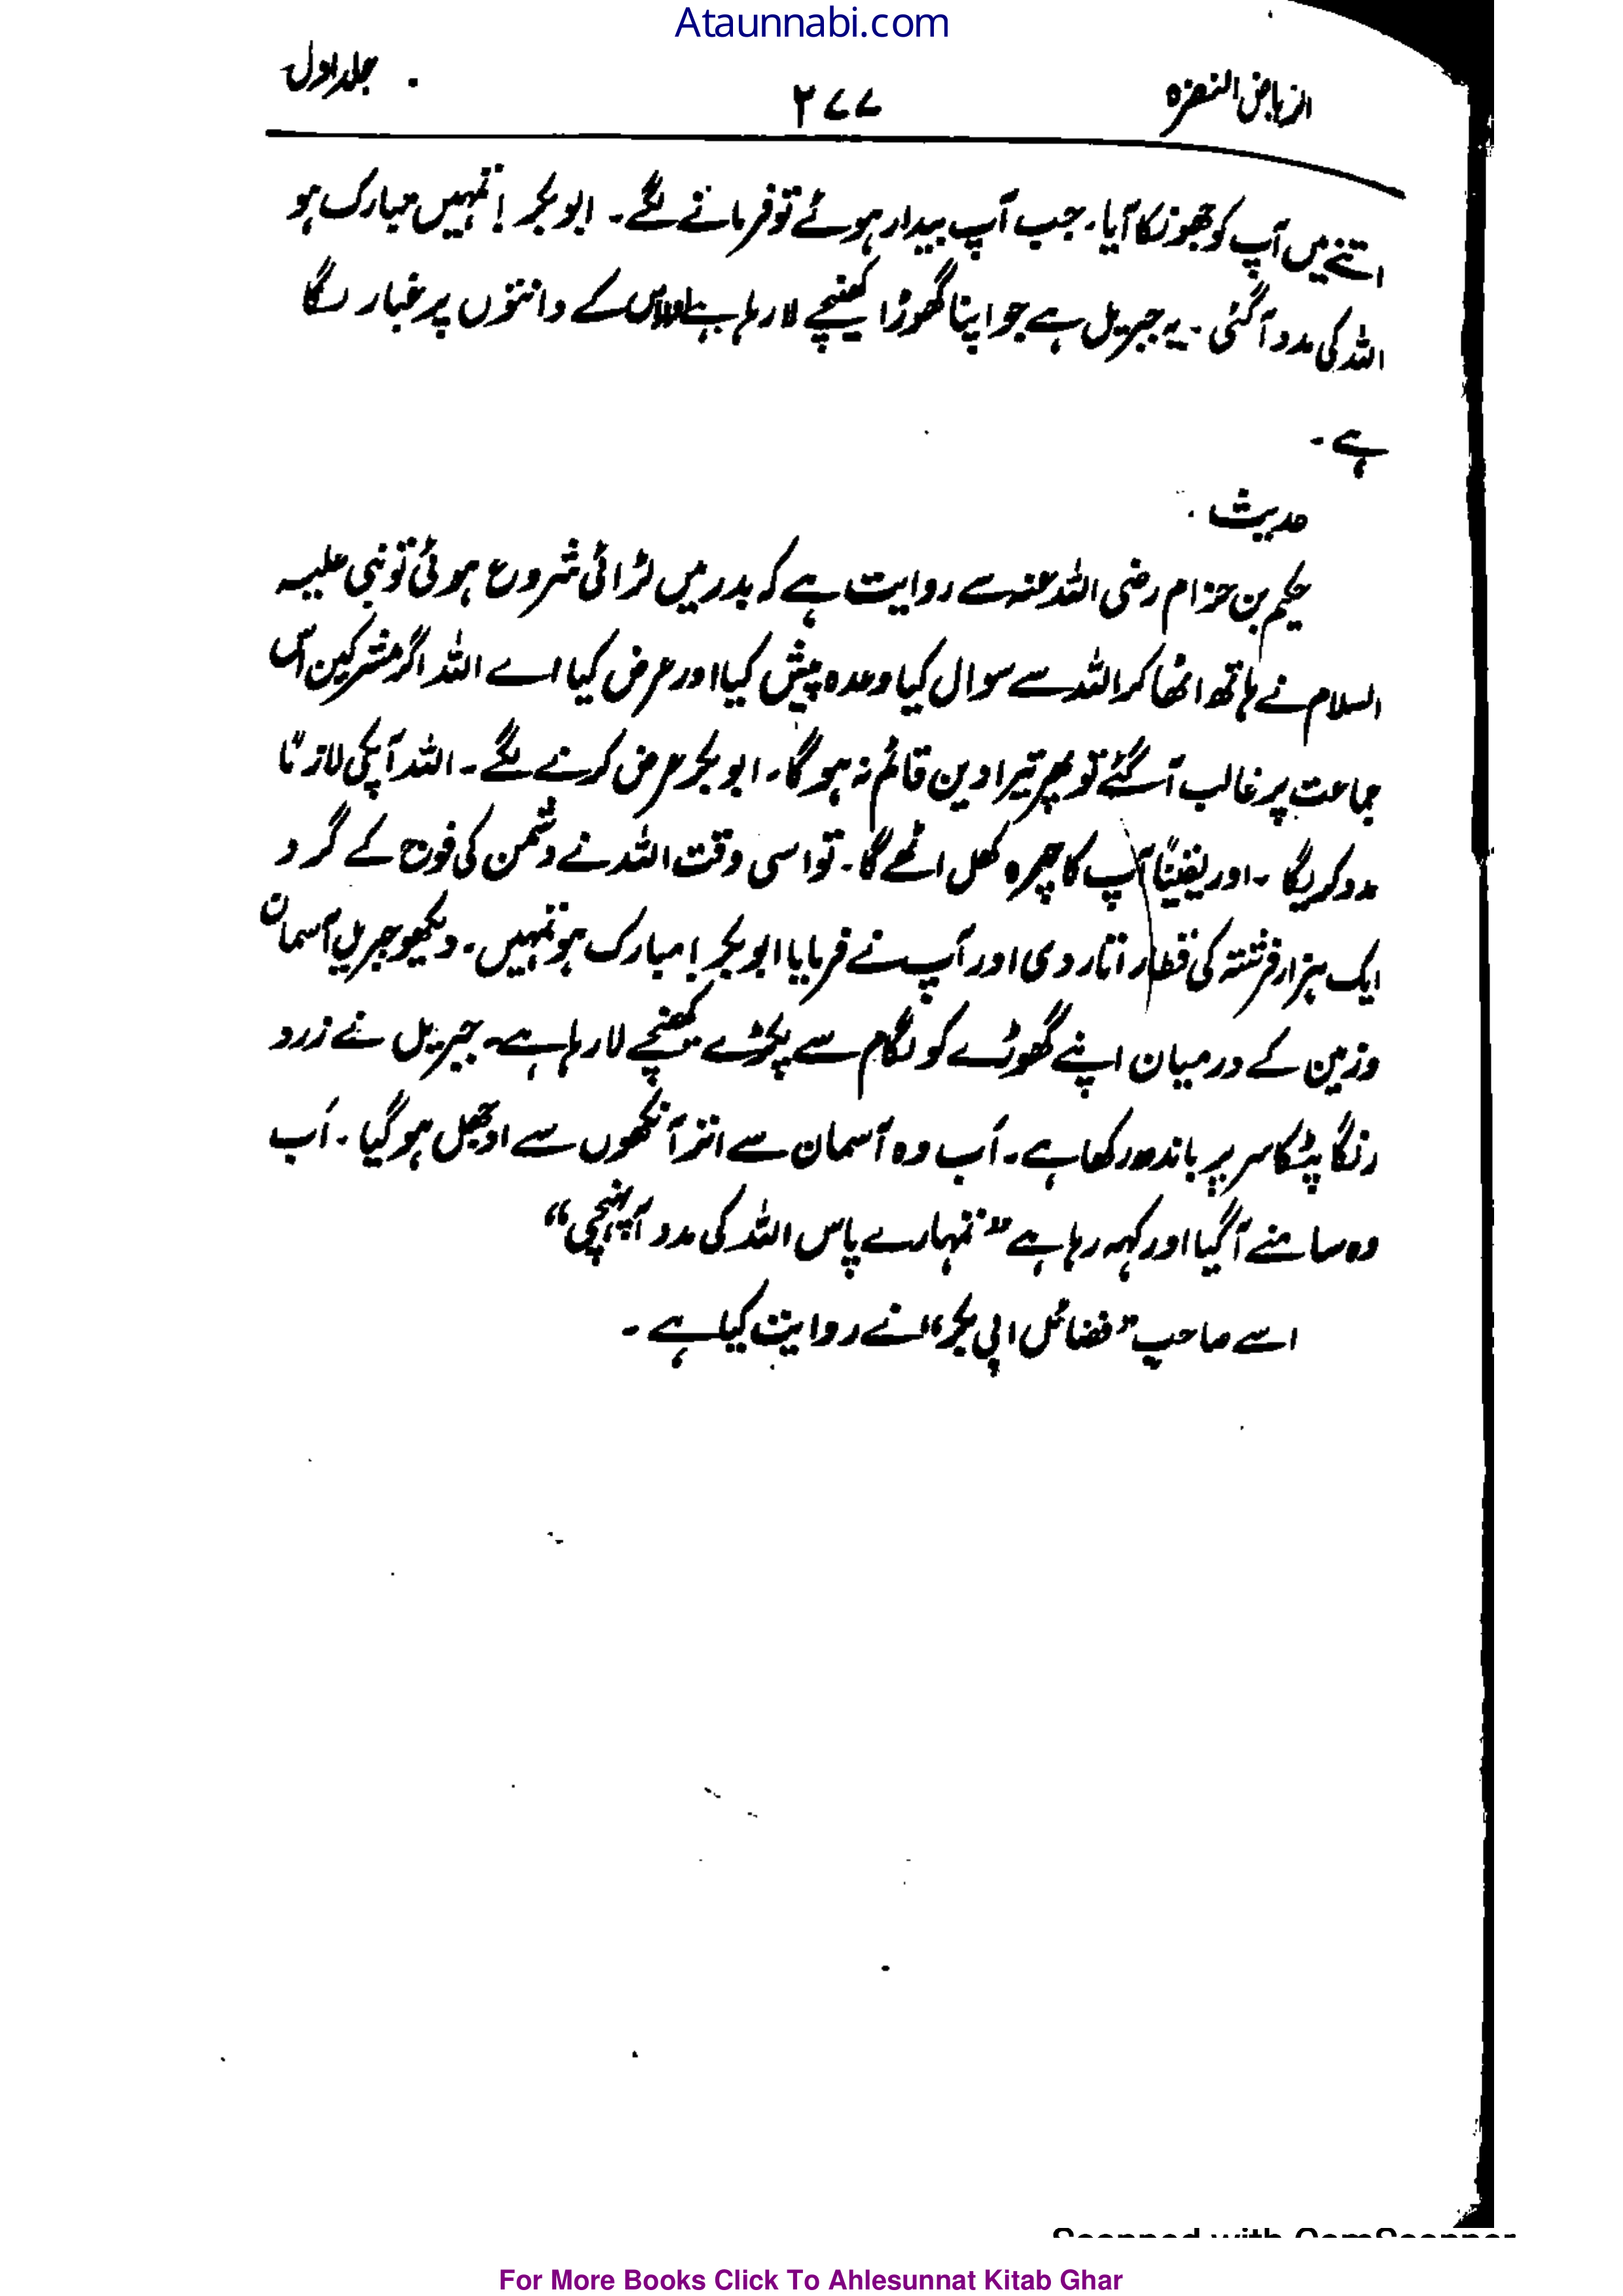 Ataunnabi.com
الریاض النضرہ ۲۷۷ جلد اول
اتنے میں آپ کو جھونکا آیا۔ جب آپ بیدار ہوئے تو فرمانے لگے۔ ابوبکر! تمہیں مبارک ہو
اللہ کی مدد آگئی۔ یہ جبریل ہے جو اپنا گھوڑا کھینچے لا رہا ہے اور اس کے دانتوں پر غبار لگا
ہے۔
حدیث۔
حکیم بن حزام رضی اللہ عنہ سے روایت ہے کہ بدر میں لڑائی شروع ہوئی تو نبی علیہ
السلام نے ہاتھ اٹھا کر اللہ سے سوال کیا وعدہ پیش کیا اور عرض کیا اے اللہ اگر مشرکین اس
جماعت پر غالب آگئے تو پھر تیرا دین قائم نہ ہوگا۔ ابوبکر عرض کرنے لگے۔ اللہ آپکی لازمًا
مدد کریگا۔ اور یقینًا آپ کا چہرہ کھل اٹھے گا۔ تو اسی وقت اللہ نے دشمن کی فوج کے گرد
ایک ہزار فرشتہ کی قطار اتار دی اور آپ نے فرمایا ابوبکر! مبارک ہو تمہیں۔ دیکھو جبریل آسمان
وزمین کے درمیان اپنے گھوڑے کو لگام سے پکڑے کھینچے لا رہا ہے۔ جبریل نے زرد
رنگا پٹکا سر پر باندھ رکھا ہے۔ اَب وہ آسمان سے اتر آنکھوں سے اوجھل ہو گیا۔ اَب
وہ سامنے آگیا اور کہہ رہا ہے ”تمہارے پاس اللہ کی مدد آپہنچی“
اسے صاحب ”فضائل ابی بکر“ نے روایت کیا ہے۔
Scanned with CamScanner
For More Books Click To Ahlesunnat Kitab Ghar